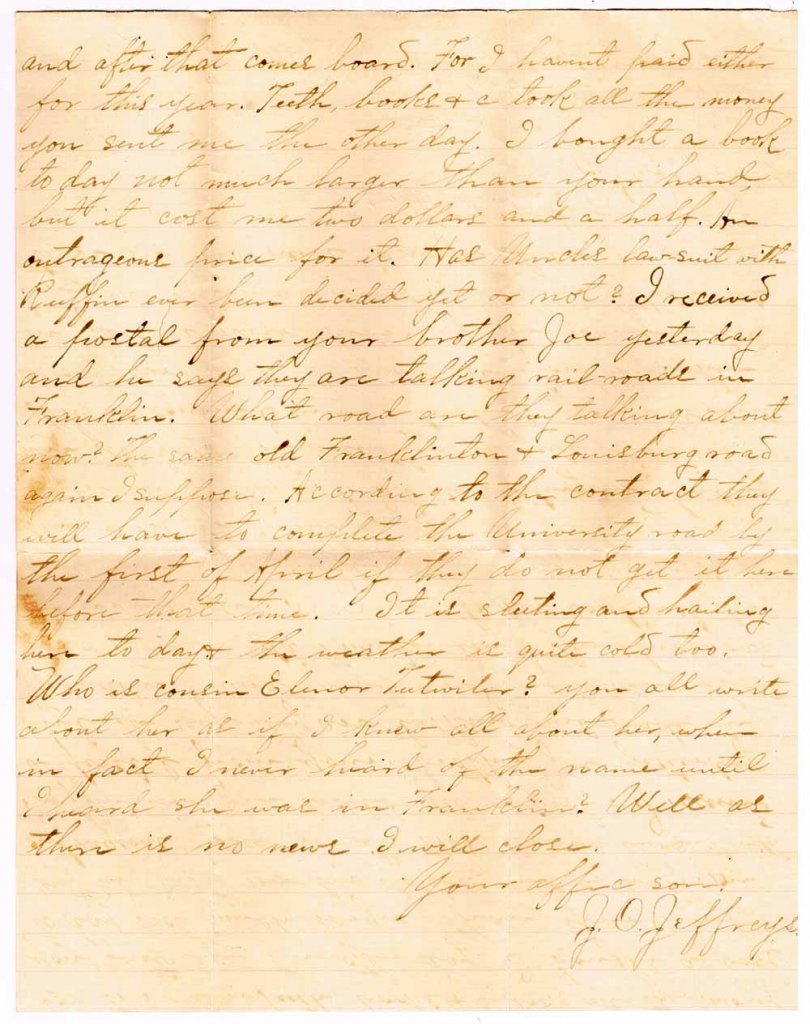 and after that comes board. For I havent paid either
for this year. Teeth, books & c took all the money
you sent me the other day. I bought a book
to day not much larger than your hand,
but it cost me two dollars and a half. An
outrageous price for it. Has Uncles lawsuit with
Ruffin ever been decided yet or not? I received
a postal from your brother Joe yesterday
and he says they are talking rail-roads in
Franklin. What road are they talking about
now? The same old Franklinton & Louisburg road
again I suppose. According to the contract they
will have to complete the University road by
the first of April if they do not get it here
before that time. It is sleeting and hailing
here to day & the weather is quite cold too.
Who is cousin Elenor Tutwiler? you all write
about her as if I knew all about her, when
in fact I never heard of the name until
I heard she was in Franklin? Well as
there is no news I will close.
Your affec son.
J. O. Jeffreys.